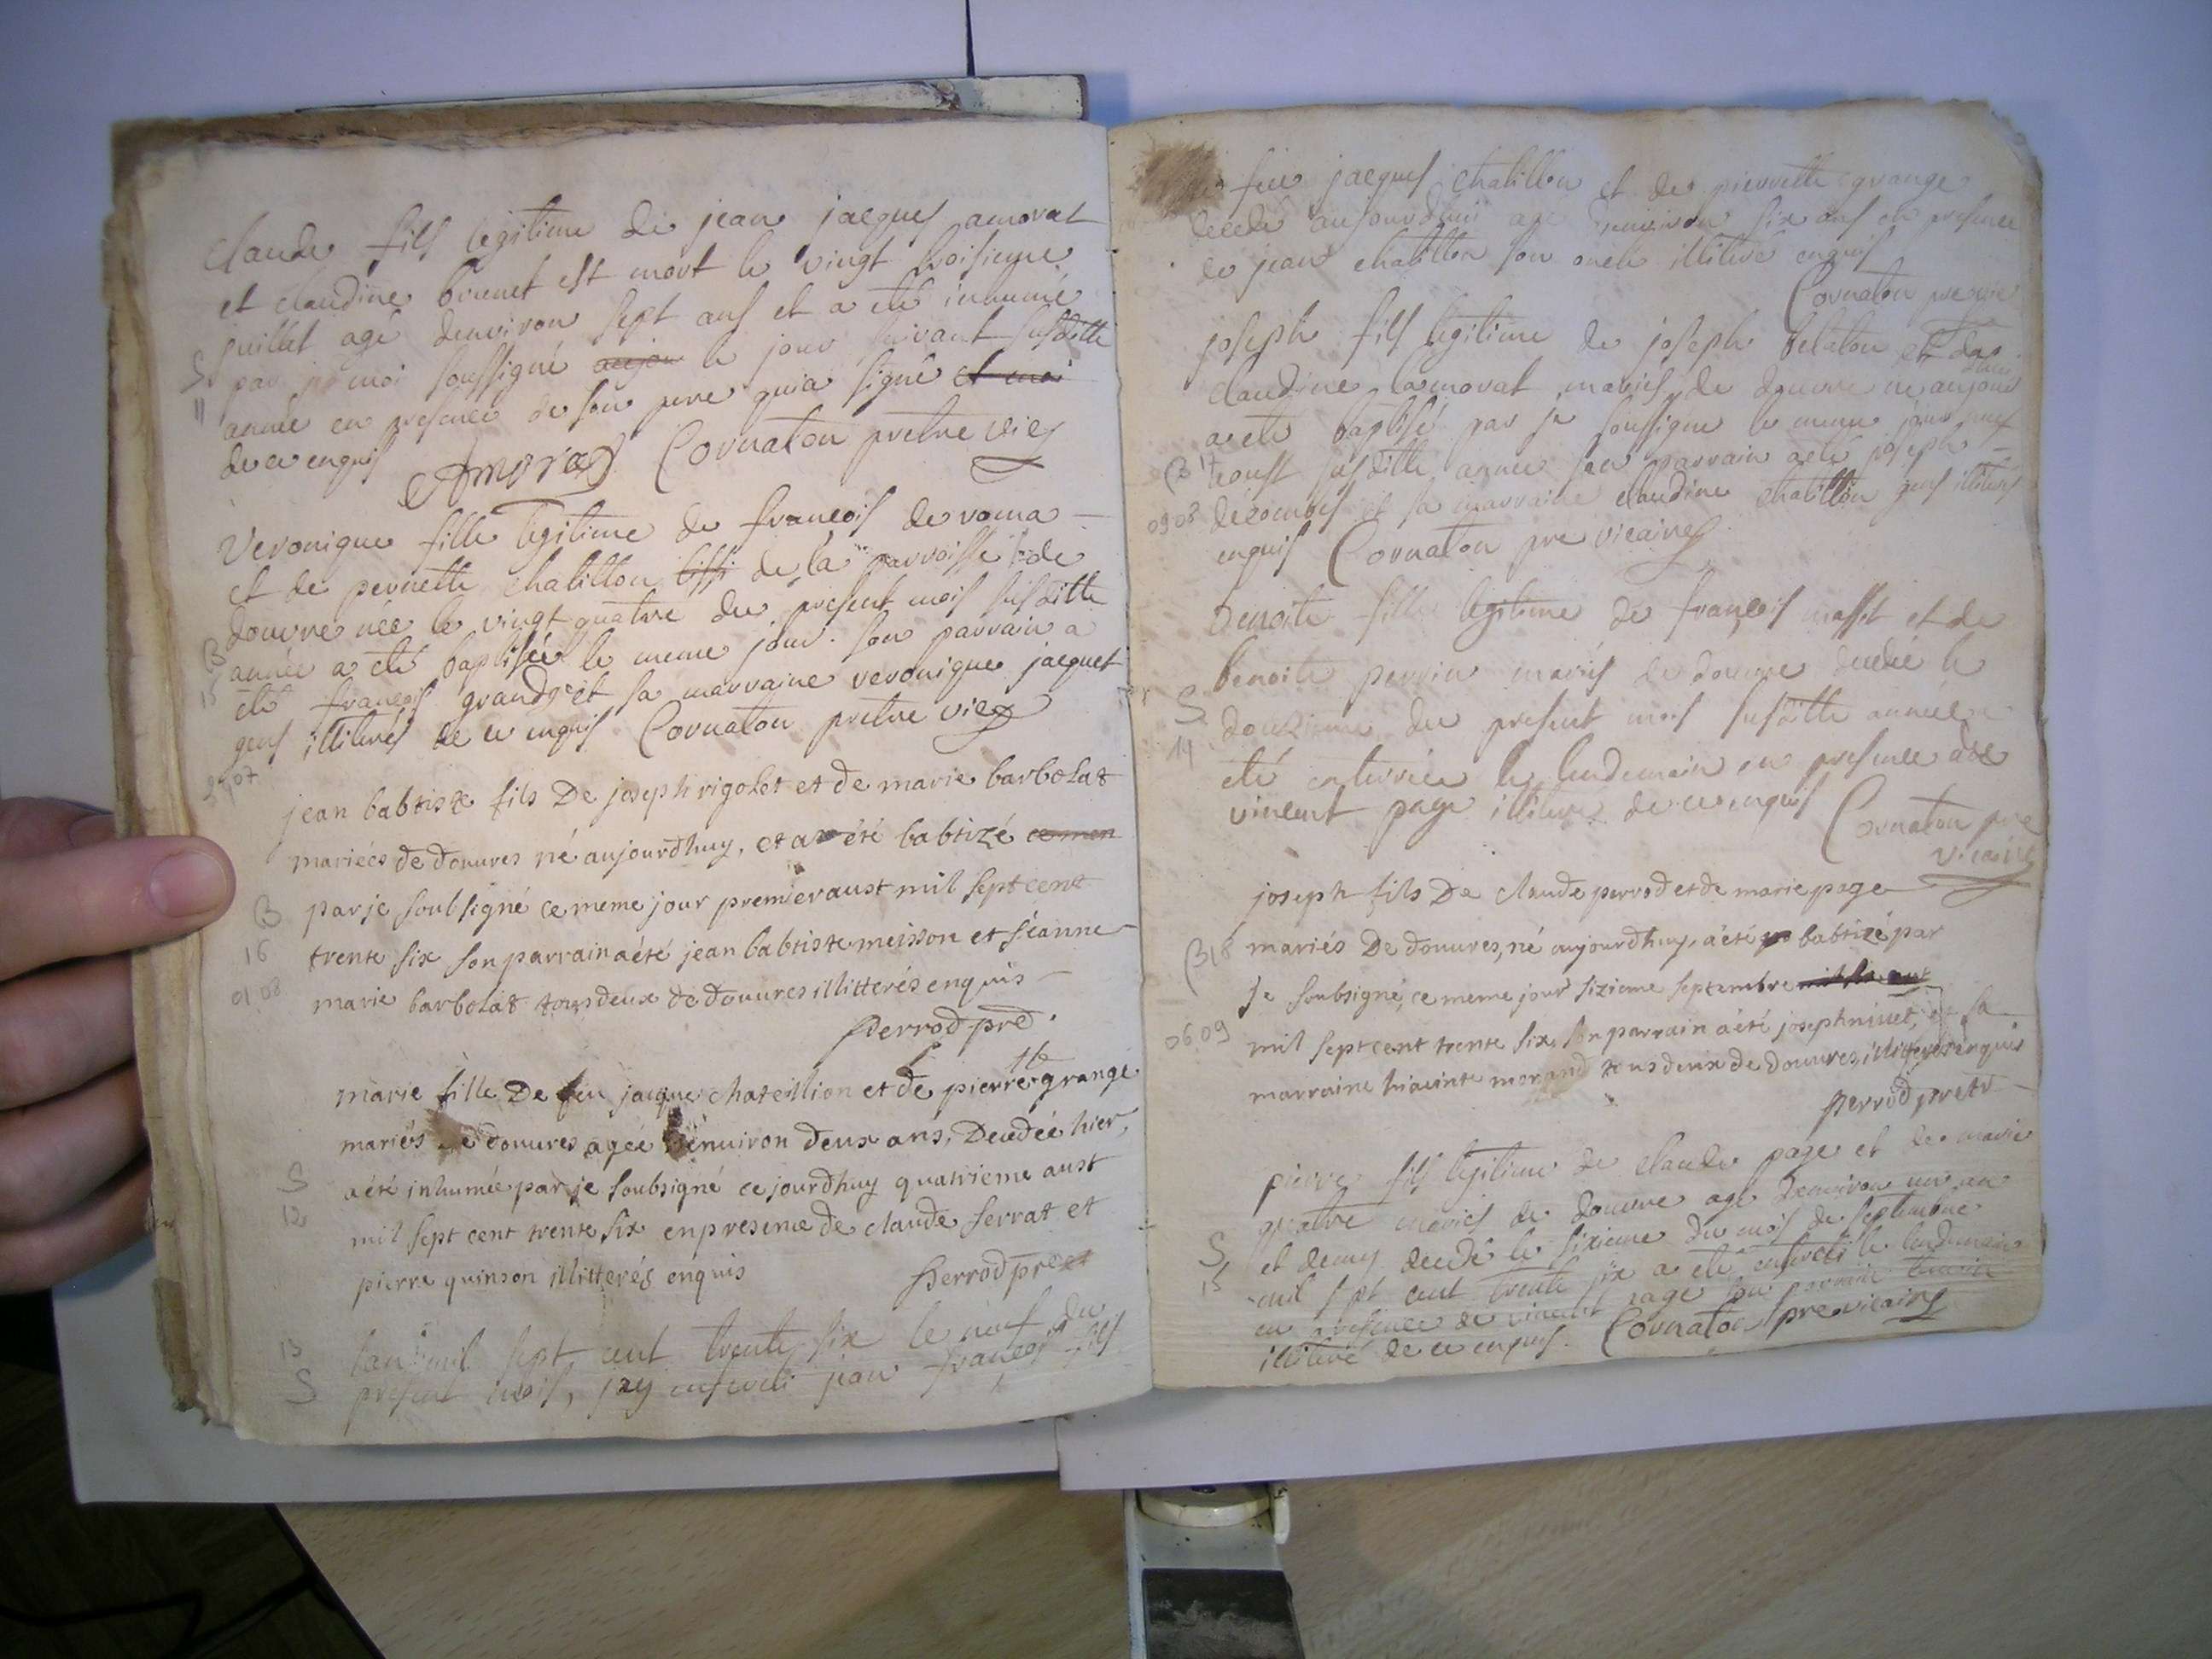 Claude fils legitime de jean jacques amorat
et claudine brunet est mort le vingt troisieme
juillet agé denviron sept ans et a eté inhumé
S par je moi soussigné le jour suivant susditte
11 année en presence de son pere qui a signé et moi
de ce enquis Amorat Cornaton pretre vic
Veronique fille legitime de francois de roma
et de pernette chatillon de la parroisse de
douvre née le vingt quatre du present mois susditte
B année a eté baptisée le meme jour son parrain a
15 eté francois grand et sa marraine veronique jacquet
gens illiterés de ce enquis Cornaton pretre vic
07
jean babtiste fils De joseph rigolet et de marie barbolat
mariées de douures né aujourdhuy, et a été babtizé
B par je soubsigné ce meme jour premier aust mil sept cent
16 trente six son parrain a été jean babtiste meisson et jéanne
01 08 marie barbolat tous deux de douures illitterés enquis
perrod pre
marie fille De feu jacque chateillion et de pierrette grange
mariés de douures agée d'enuiron deux ans, Decedée hier,
S a été inhumée par je soubsigné ce jourdhuy quatrieme aust
12 mil sept cent trente six en presence de claude ferrat et
pierre quinson illitterés enquis perrod pret
13 lan mil sept cent trente six le neuf du
S present mois, jay enseveli jean francois fils
feu jacques chatillon et de pierrette grange
decedé aujourdhuii agé denviron six ans en presence
de jean chatillon son oncle illiteré enquis
Cornaton pre vic
joseph fils legitime de joseph belaton et de
claudine lamorat mariés de douvre né aujour
a eté baptisé par je soussigne le meme jour neuf
B 17 aoust susditte année son parrain a eté joseph
09 08 decombes et sa marraine claudine chatillon gens illiterés
enquis Cornaton pre vicaire
benoite fille legitime de francois massit et de
benoite perrin mariés de douvre decedée le
S douzieme du present mois susditte année a
14 eté enterrée le lendemain en presence de
vincent page illiteré de ce enquis Cornaton pre
vicaire
joseph fils De claude perrod et de marie page
B 18 mariés De douures, né aujourdhuy, a été babtizé par
je soubsigné, ce meme jour sizieme septembre
06 09 mil sept cent trente six, son parrain a été joseph niuet, et sa
marraine hiacinte morand tous deux de douures, illitterés enquis
perrod pretr
pierre fils legitime de claude page et de marie
quatre mariés de douvre agé denviron un an
S et demy decedé le sixieme du mois de septembre
15 mil sept cent trente six a eté enseveli le lendemain
en presence de vincent page son parrain
illiteré de ce enquis. Cornaton pre vicaire